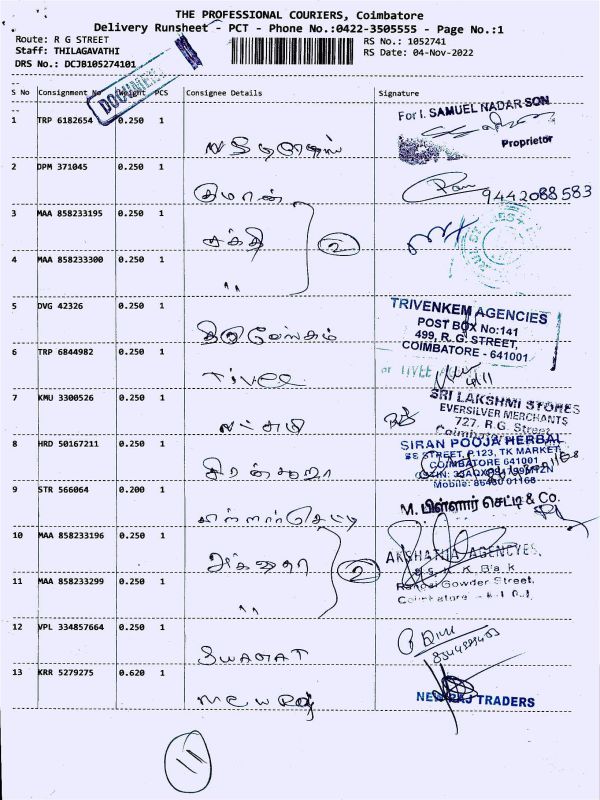 THE PROFESSIONAL COURIERS, Coimbatore
Delivery Runsheet - PCT - Phone No.:0422-3505555 - Page No.:1
Route: R G STREET RS No.: 1052741
Staff: THILAGAVATHI RS Date: 04-Nov-2022
DRS No.: DCJB105274101
DOCUMENT
S No Consignment No Weight PCS Consignee Details Signature
1 TRP 6182654 0.250 1
For I. SAMUEL NADAR SON
Proprietor
2 DPM 371045 0.250 1
குமரன் 9442088583
3 MAA 858233195 0.250 1
சக்தி 2
4 MAA 858233300 0.250 1
"
5 DVG 42326 0.250 1
TRIVENKEM AGENCIES
POST BOX No:141
499, R.G. STREET,
COIMBATORE - 641001
6 TRP 6844982 0.250 1
Tivee
7 KMU 3300526 0.250 1
லட்சுமி
SRI LAKSHMI STORES
EVERSILVER MERCHANTS
727, R.G. Street,
Coimbatore
8 HRD 50167211 0.250 1
SIRAN POOJA HERBAL
STREET, P.123, TK MARKET
COIMBATORE 641001
9 STR 566064 0.200 1
M. பிள்ளார் செட்டி & Co.
10 MAA 858233196 0.250 1
2
AKSHATHA AGENCYES,
11 MAA 858233299 0.250 1
"
Gowder Street,
12 VPL 334857664 0.250 1
SWAGAT
13 KRR 5279275 0.620 1
NEW RAJ
NEW RAJ TRADERS
11